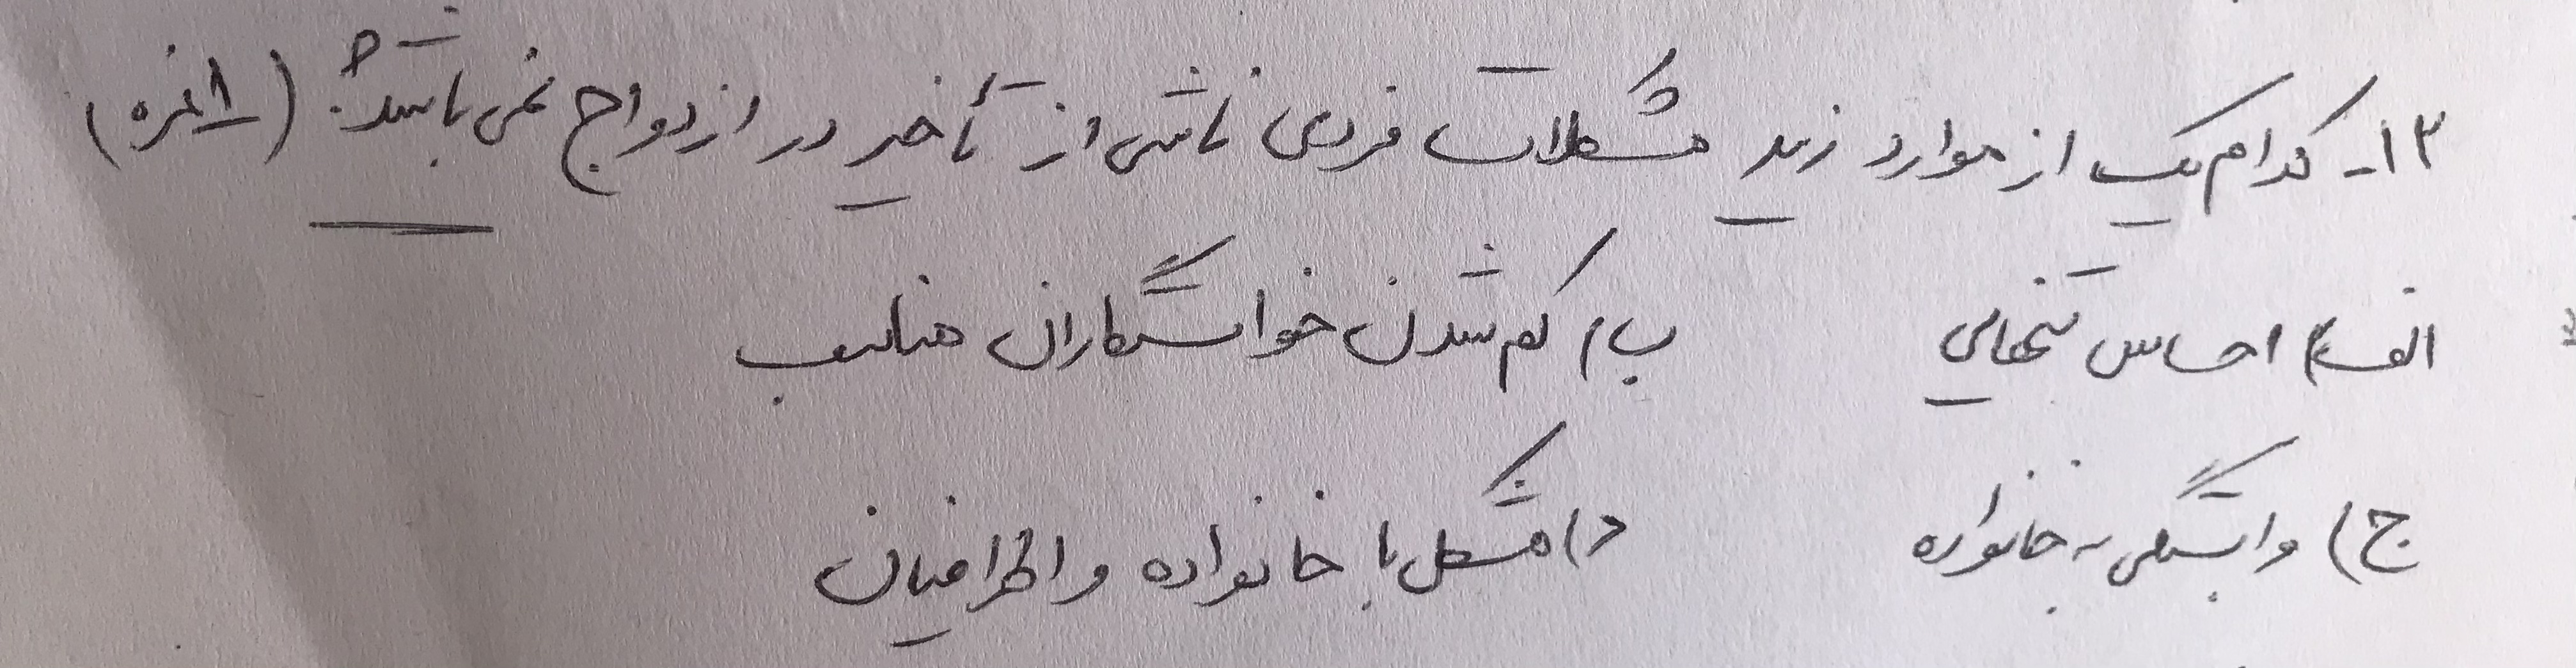 ۱۳- کدام یک از موارد زیر مشکلات فردی ناشی از تأخیر در ازدواج نمی باشد؟ (۱ نمره)
الف) احساس تنهایی ب) کم شدن خواستگاران مناسب
ج) وابستگی به خانواده د) مشکل با خانواده و اطرافیان